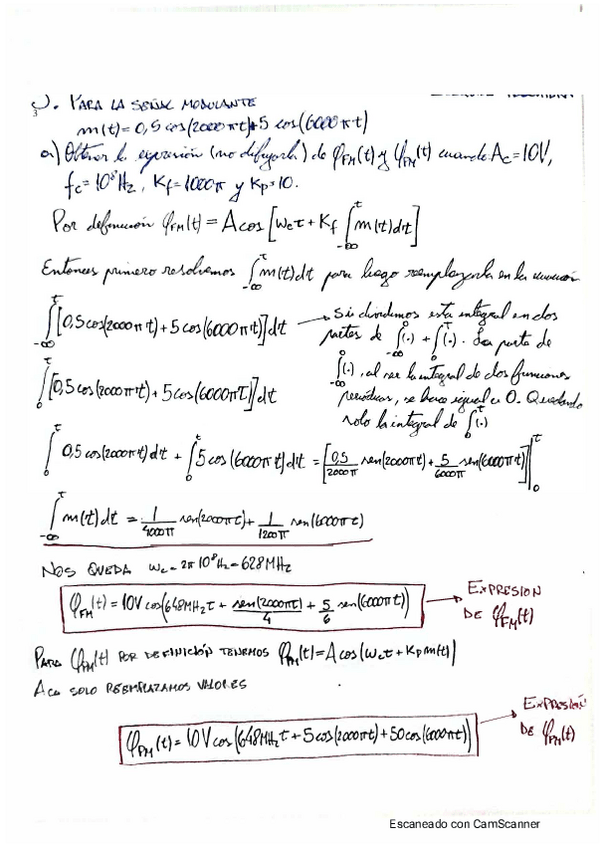 3. PARA LA SEÑAL MODULANTE
m(t)=0,5 cos(2000πt)+5 cos(6000πt)
a) Obtener la expresión (no dibujarla) de φFM(t) y φPM(t) cuando Ac=10V,
fc=10⁸Hz, Kf=1000π y Kp=10.
Por definición φFM(t)=A cos[ωct+Kf ∫_{-∞}^{t} m(t)dt]
Entonces primero resolvemos ∫_{-∞}^{t} m(t)dt para luego reemplazarla en la ecuación
∫_{-∞}^{t} [0,5cos(2000πt)+5cos(6000πt)]dt → Si dividimos esta integral en dos
partes de ∫_{-∞}^{0}(.) + ∫_{0}^{t}(.). La parte de
∫_{-∞}^{0}(.), al ser la integral de dos funciones
periódicas, se hace igual a 0. Quedando
solo la integral de ∫_{0}^{t}(.)
∫_{0}^{t} [0,5cos(2000πt)+5cos(6000πt)]dt
∫_{0}^{t} 0,5 cos(2000πt)dt + ∫_{0}^{t} 5cos(6000πt)dt = [0,5/2000π sen(2000πt)+ 5/6000π sen(6000πt)]|_{0}^{t}
∫_{-∞}^{t} m(t)dt = 1/4000π sen(2000πt)+ 1/1200π sen(6000πt)
NOS QUEDA ωc=2π 10⁸Hz=628MHz
φFM(t)=10V cos(648MHz t + sen(2000πt)/4 + 5/6 sen(6000πt)) → EXPRESION
DE φFM(t)
PARA φPM(t) POR DEFINICIÓN TENEMOS φPM(t)=A cos(ωct+Kp m(t))
ACA SOLO REEMPLAZAMOS VALORES
φPM(t)=10V cos(648MHz t+5cos(2000πt)+50cos(6000πt)) → EXPRESIÓN
DE φPM(t)
Escaneado con CamScanner